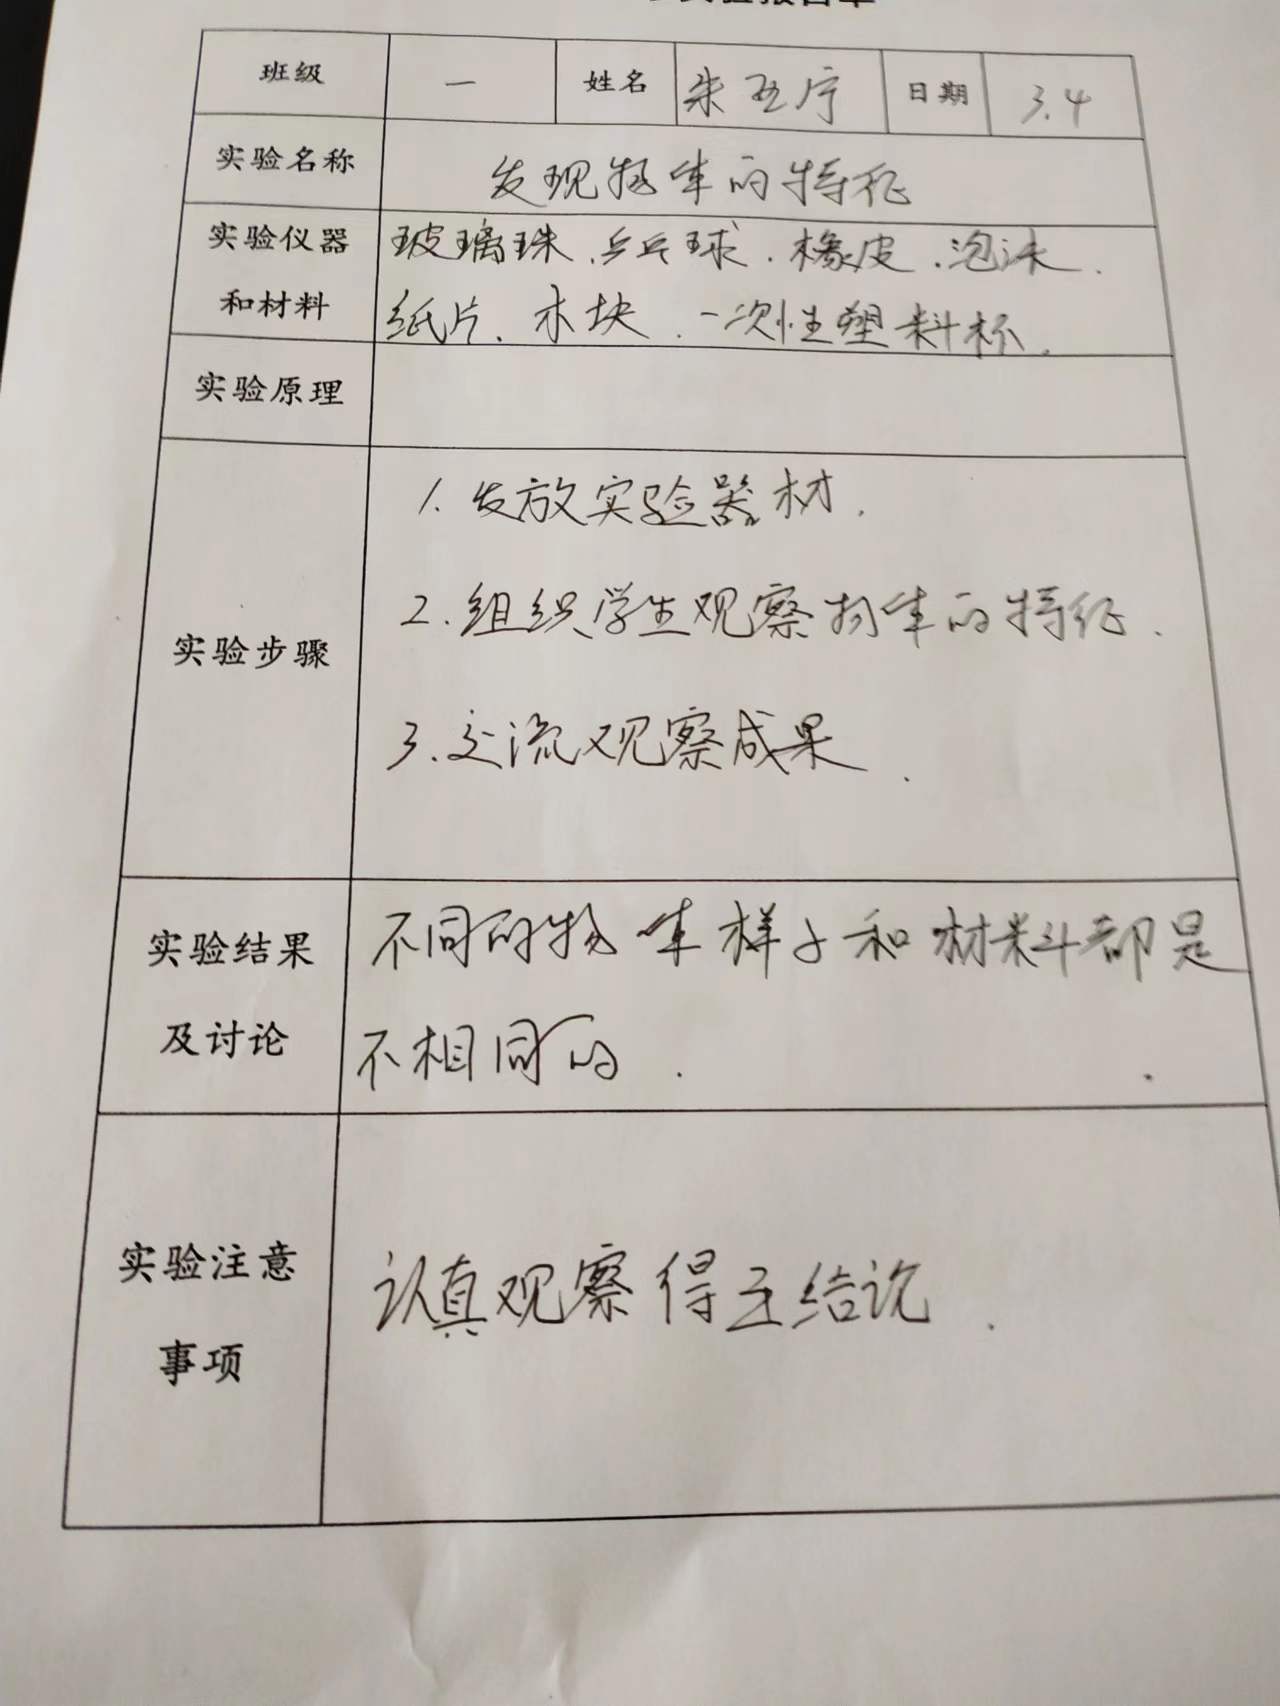 实验报告单
班级 一 姓名 朱玉宁 日期 3.4
实验名称 发现物体的特征
实验仪器 玻璃珠、乒乓球、橡皮、泡沫、
和材料 纸片、木块、一次性塑料杯.
实验原理
1.发放实验器材.
2.组织学生观察物体的特征.
实验步骤
3.交流观察成果.
实验结果 不同的物体样子和材料都是
及讨论 不相同的.
实验注意 认真观察得出结论.
事项